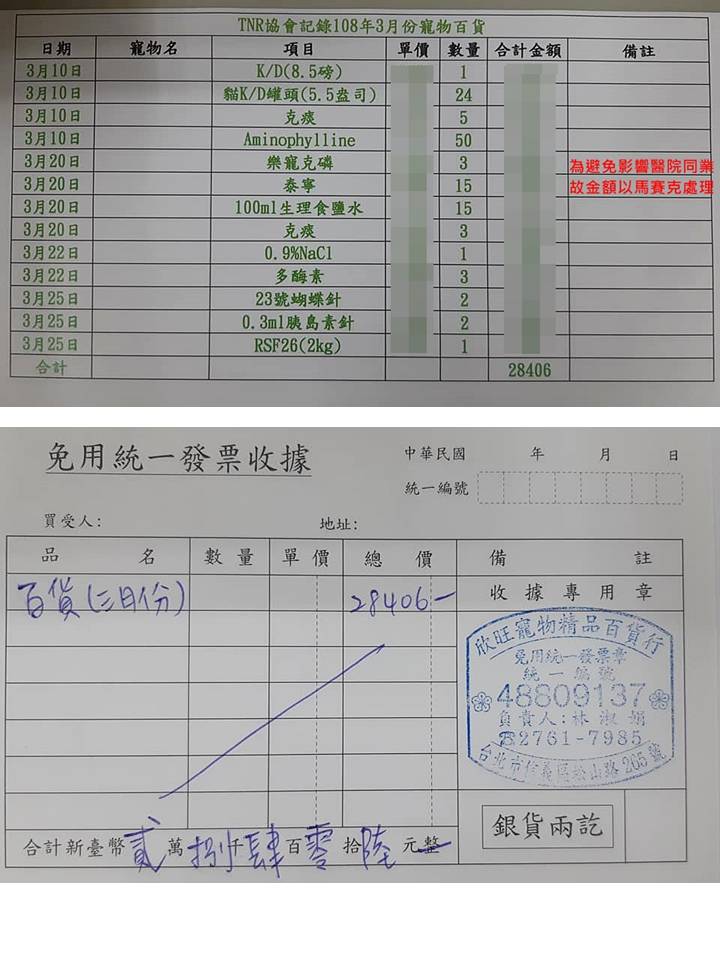 TNR協會記錄108年3月份寵物百貨
日期 寵物名 項目 單價 數量 合計金額 備註
3月10日 K/D(8.5磅) 1
3月10日 貓K/D罐頭(5.5盎司) 24
3月10日 克痰 5
3月10日 Aminophylline 50
3月20日 樂寵克磷 3 為避免影響醫院同業
3月20日 泰寧 15 故金額以馬賽克處理
3月20日 100ml生理食鹽水 15
3月20日 克痰 3
3月22日 0.9%NaCl 1
3月22日 多酶素 3
3月25日 23號蝴蝶針 2
3月25日 0.3ml胰島素針 2
3月25日 RSF26(2kg) 1
合計 28406
免用統一發票收據
中華民國 年 月 日
統一編號
買受人: 地址:
品名 數量 單價 總價 備註
百貨(三月份) 28406- 收據專用章
欣旺寵物精品百貨行
免用統一發票章
統一編號
48809137
負責人:林淑娟
☎2761-7985
台北市信義區松山路265號
銀貨兩訖
合計新臺幣貳萬捌仟肆百零拾陸元整